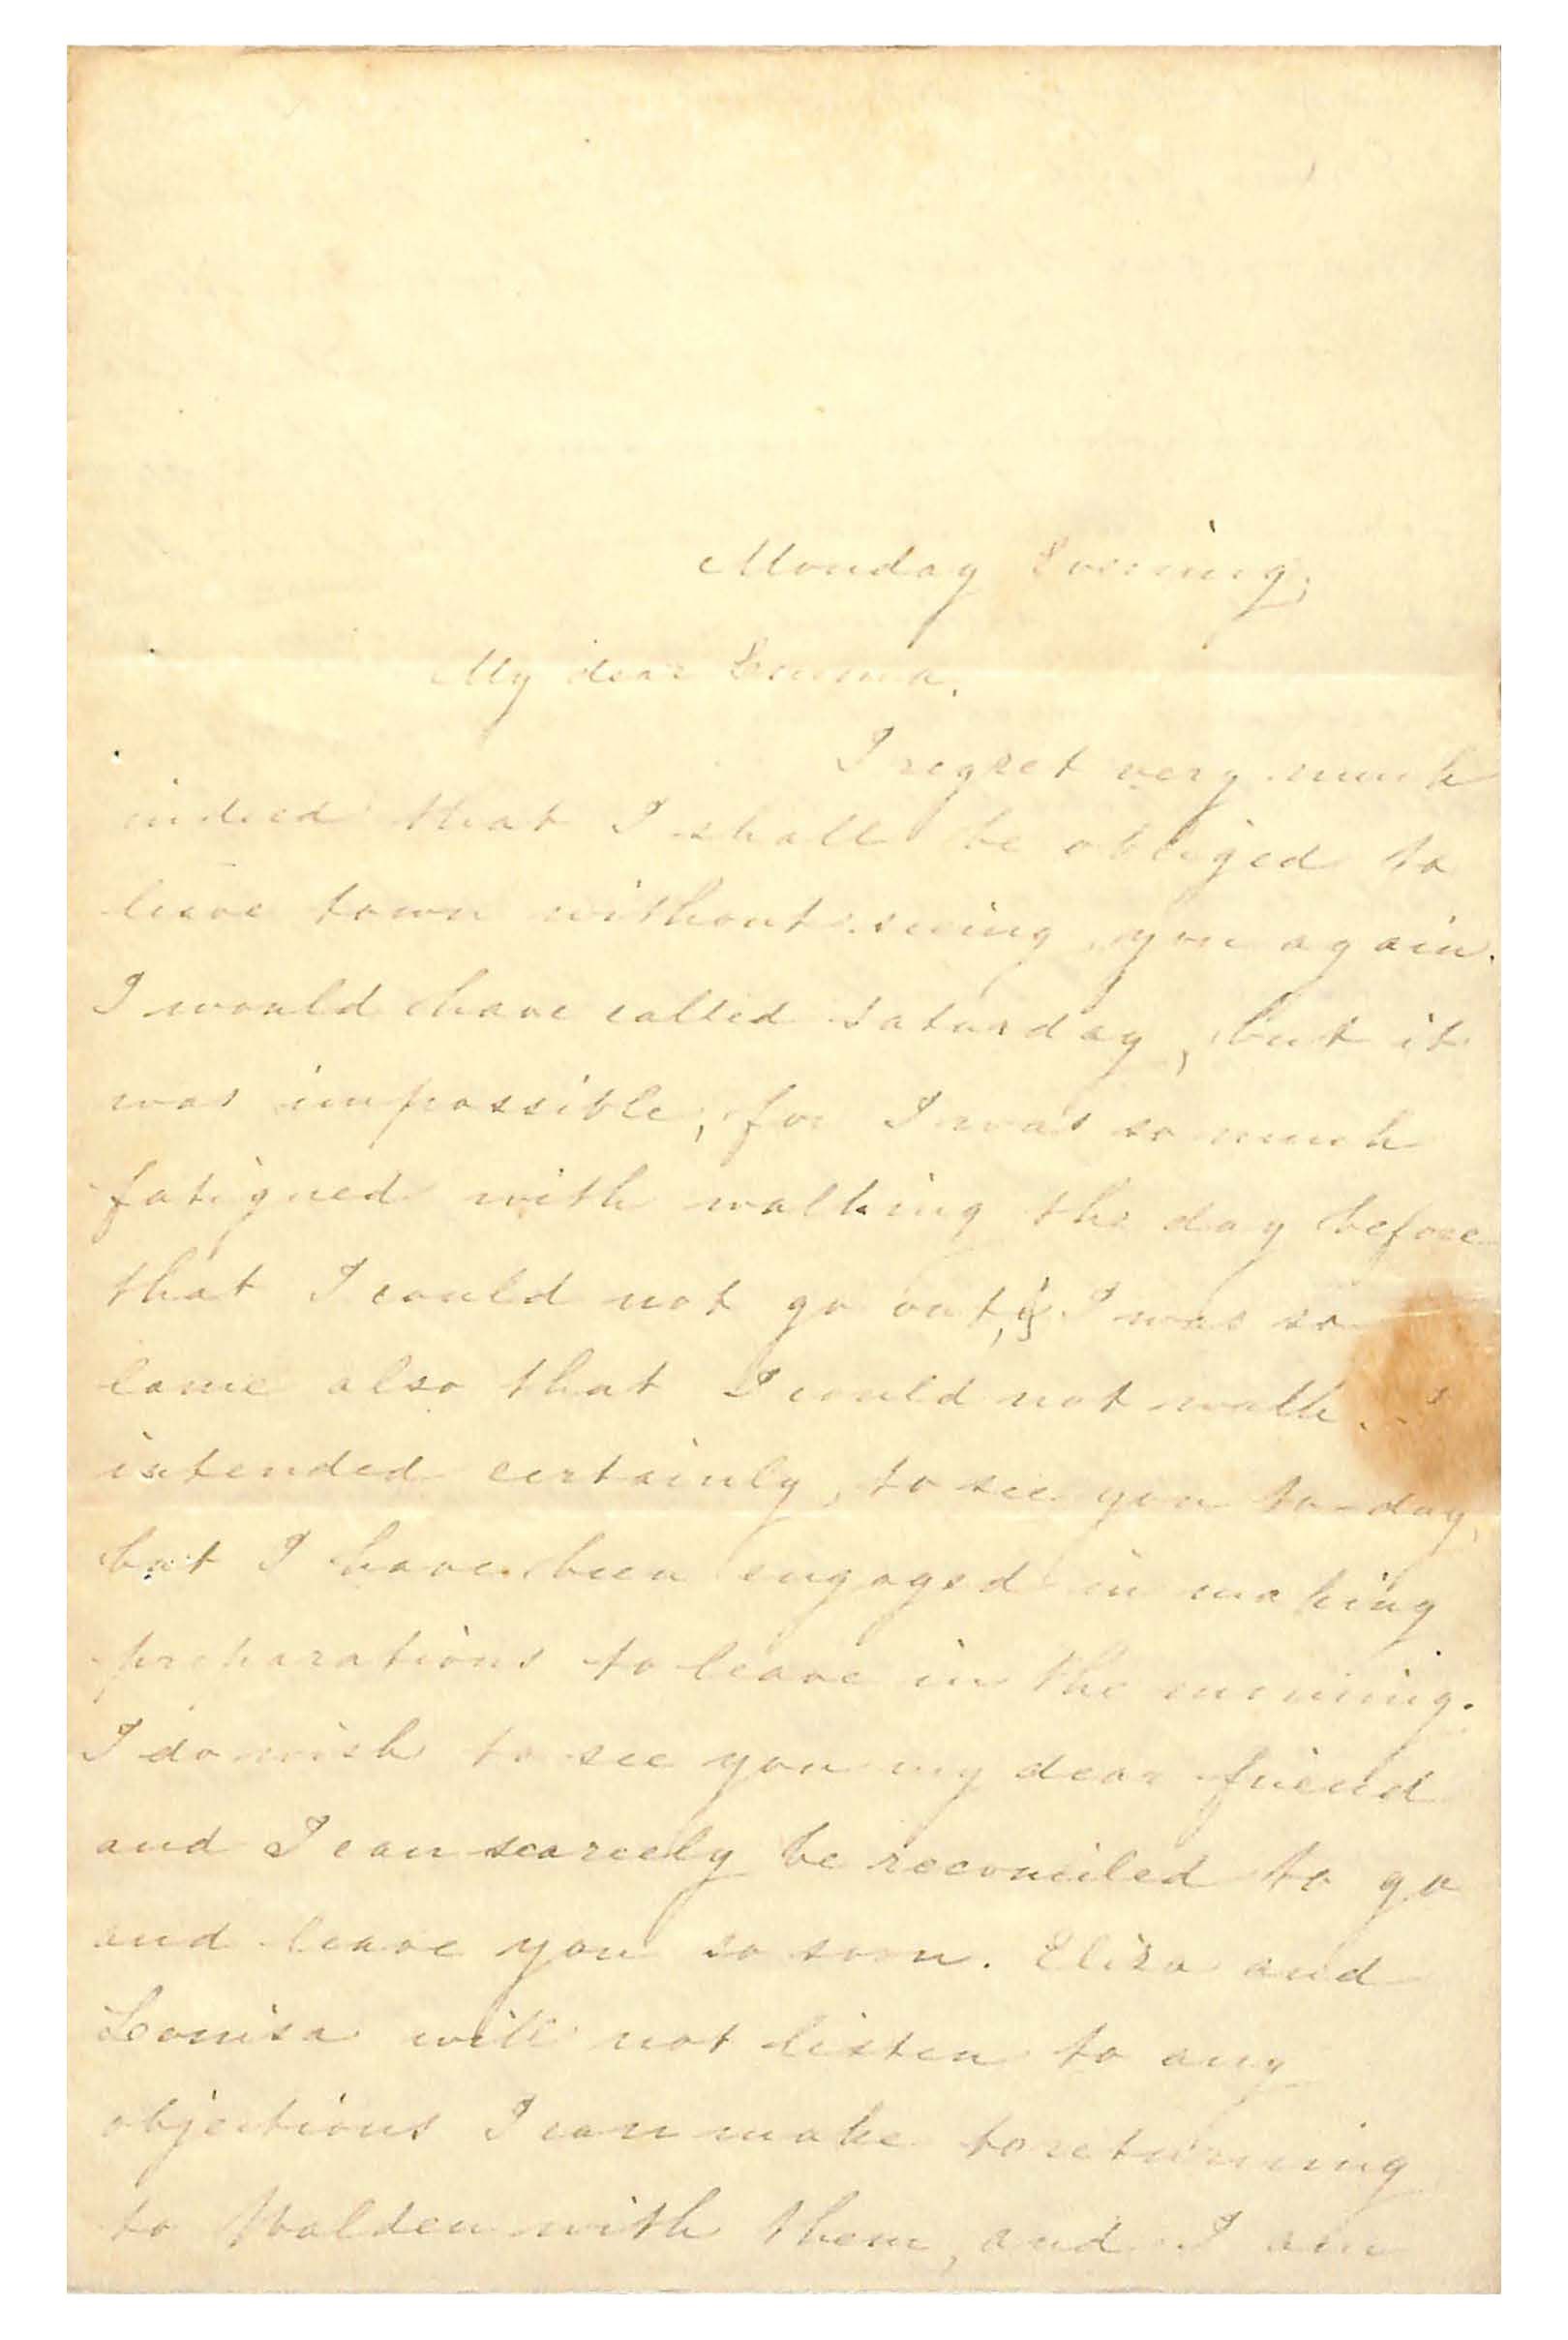 Monday Evening,
My dear Emma,
I regret very much
indeed that I shall be obliged to
leave town without seeing you again.
I would have called Saturday, but it
was impossible, for I was so much
fatigued with walking the day before
that I could not go out, & I was so
lame also that I could not walk. I
intended certainly, to see you to-day,
but I have been engaged in making
preparations to leave in the morning.
I do wish to see you my dear friend
and I can scarcely be reconciled to go
and leave you so soon. Eliza and
Louisa will not listen to any
objections I can make to returning
to Walden with them, and I am